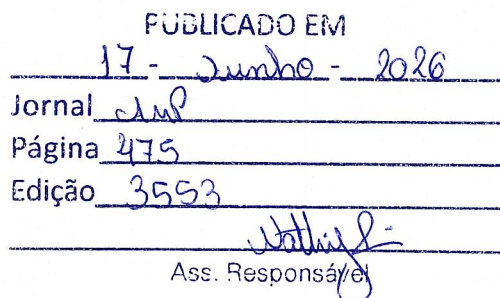 PUBLICADO EM
17 - Junho - 2026
Jornal AMP
Página 475
Edição 3553
Ass. Responsável